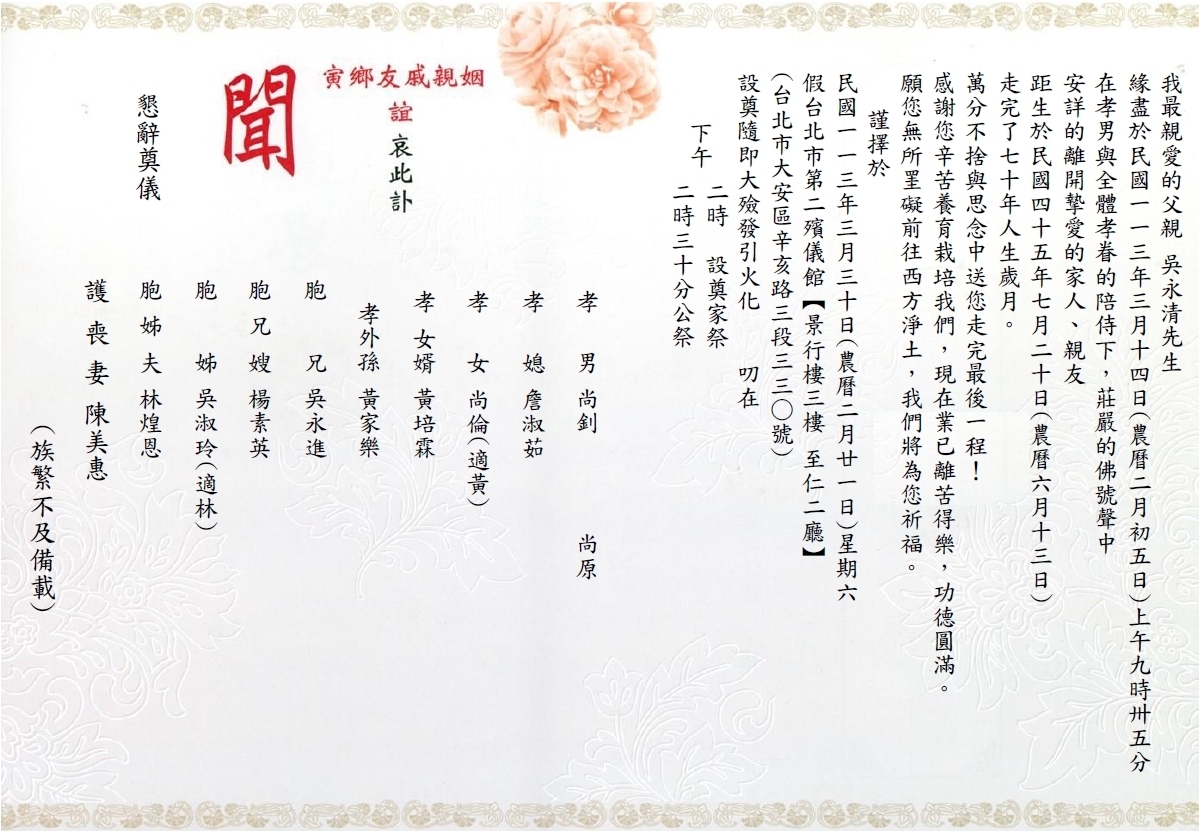 我最親愛的父親 吳永清先生
緣盡於民國一一三年三月十四日(農曆二月初五日)上午九時卅五分
在孝男與全體孝眷的陪侍下，莊嚴的佛號聲中
安詳的離開摯愛的家人、親友
距生於民國四十五年七月二十日(農曆六月十三日)
走完了七十年人生歲月。
萬分不捨與思念中送您走完最後一程！
感謝您辛苦養育栽培我們，現在業已離苦得樂，功德圓滿。
願您無所罣礙前往西方淨土，我們將為您祈福。
謹擇於
民國一一三年三月三十日(農曆二月廿一日)星期六
假台北市第二殯儀館【景行樓三樓 至仁二廳】
(台北市大安區辛亥路三段三三〇號)
設奠隨即大殮發引火化 叨在
下午 二時 設奠家祭
二時三十分公祭
孝男 尚釗 尚原
孝媳 詹淑茹
孝女 尚倫(適黃)
孝女婿 黃培霖
孝外孫 黃家樂
胞兄 吳永進
胞兄嫂 楊素英
胞姊 吳淑玲(適林)
胞姊夫 林煌恩
護喪妻 陳美惠
(族繁不及備載)
寅鄉友戚親姻
誼
哀此訃
聞
懇辭奠儀